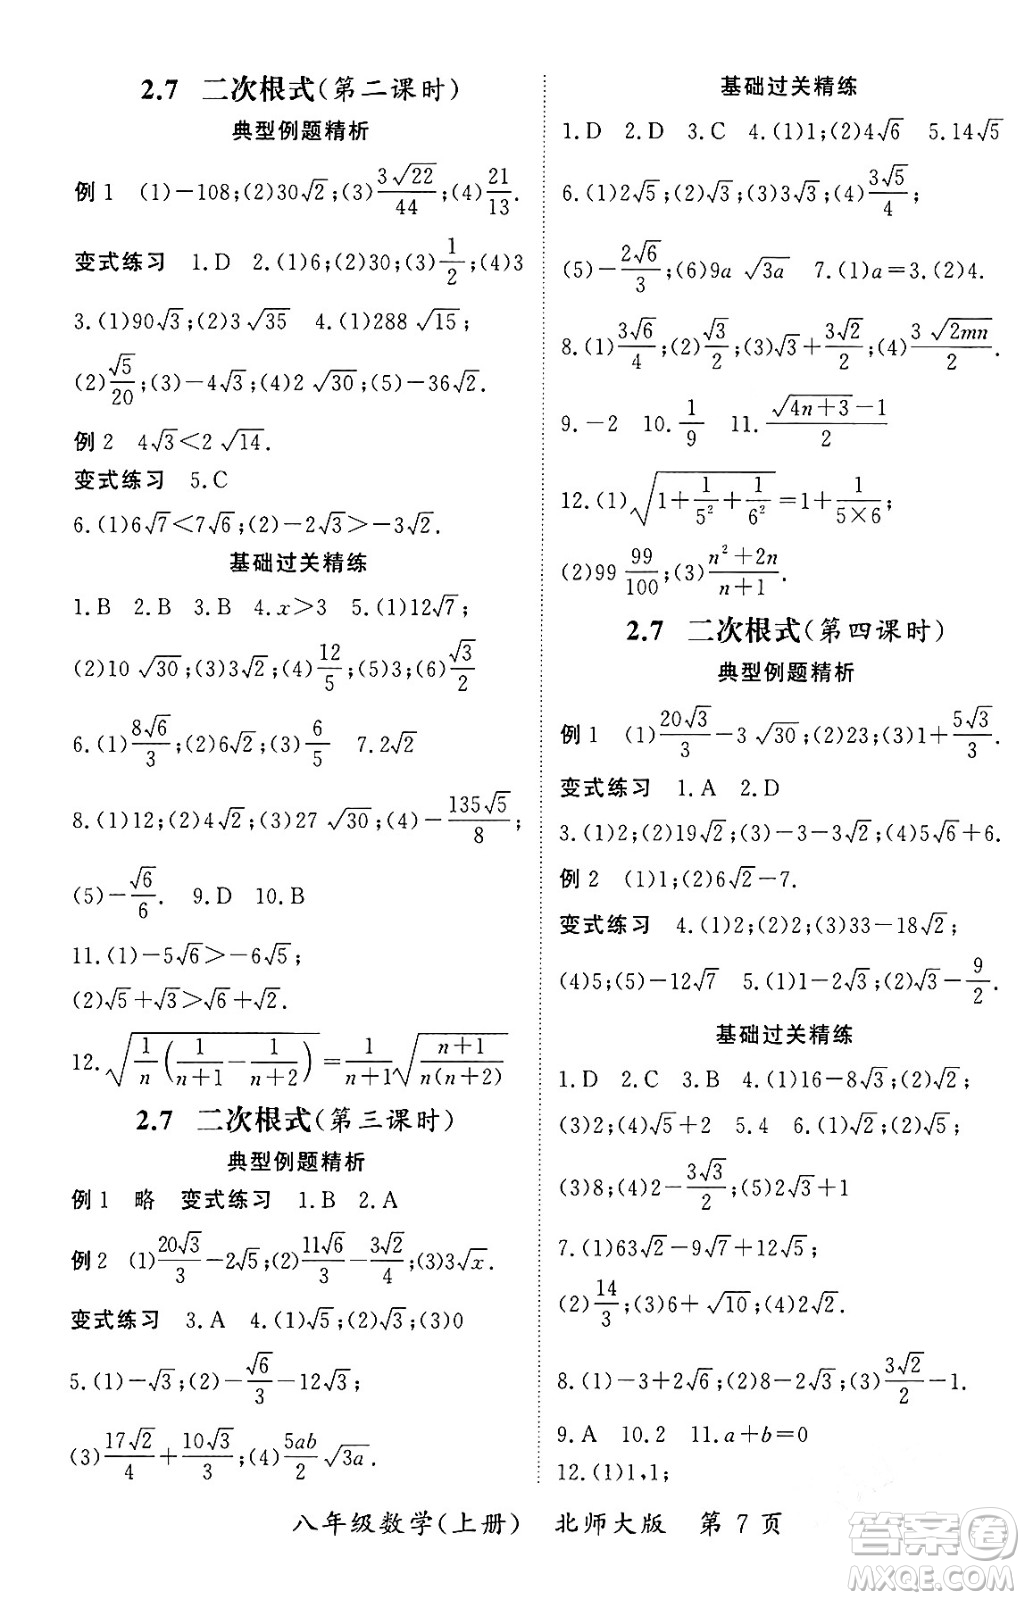 2.7 二次根式(第二课时)
典型例题精析
例1 (1)-108;(2)30√2;(3)3√22/44;(4)21/13.
变式练习 1.D 2.(1)6;(2)30;(3)1/2;(4)3
3.(1)90√3;(2)3√35 4.(1)288√15;
(2)√5/20;(3)-4√3;(4)2√30;(5)-36√2.
例2 4√3<2√14.
变式练习 5.C
6.(1)6√7<7√6;(2)-2√3>-3√2.
基础过关精练
1.B 2.B 3.B 4.x>3 5.(1)12√7;
(2)10√30;(3)3√2;(4)12/5;(5)4√3;(6)√3/2
6.(1)8√6/3;(2)6√2;(3)6/5 7.2√2
8.(1)12;(2)4√2;(3)27√30;(4)-135√5/8;
(5)-√6/6. 9.D 10.B
11.(1)-5√6>-6√5;
(2)√5+√3>√6+√2.
12.√(1/n(1/(n+1)-1/(n+2)))=1/(n+1)√((n+1)/(n(n+2)))
2.7 二次根式(第三课时)
典型例题精析
例1 略 变式练习 1.B 2.A
例2 (1)20√3/3-2√5;(2)11√6/3-3√2/4;(3)3√x.
变式练习 3.A 4.(1)√5;(2)√3;(3)0
5.(1)-√3;(2)√6/3-12√3;
(3)17√2/4+10√3/3;(4)5ab/2√3a.
基础过关精练
1.D 2.D 3.C 4.(1)1;(2)4√6 5.14√5
6.(1)2√5;(2)√3;(3)3√3;(4)3√5/4;
(5)-2√6/3;(6)9a√3a 7.(1)a=3.(2)4.
8.(1)3√6/4;(2)√3/2;(3)√3+3√2/2;(4)3√2mn/2.
9.-2 10.1/9 11.(√(4n+3)-1)/2
12.(1)√(1+1/5²+1/6²)=1+1/(5×6);
(2)99 99/100;(3)(n²+2n)/(n+1).
2.7 二次根式(第四课时)
典型例题精析
例1 (1)20√3/3-3√30;(2)23;(3)1+5√3/3.
变式练习 1.A 2.D
3.(1)2;(2)19√2;(3)-3-3√2;(4)5√6+6.
例2 (1)1;(2)6√2-7.
变式练习 4.(1)2;(2)2;(3)33-18√2;
(4)5;(5)-12√7 5.(1)1-2√3;(2)√3-9/2.
基础过关精练
1.D 2.B 3.B 4.(1)16-8√3;(2)2√3;
(3)2;(4)√5+2 5.4 6.(1)2√5;(2)√5;
(3)8;(4)2-3√3/2;(5)2√3+1
7.(1)63√2-9√7+12√5;
(2)14/3;(3)6+√10;(4)5√2.
8.(1)-3+2√6;(2)8-2√3;(3)3√2/2-1.
9.A 10.2 11.a+b=0
12.(1)1,1;
八年级数学(上册) 北师大版 第7页
答案圈
MXQE.COM